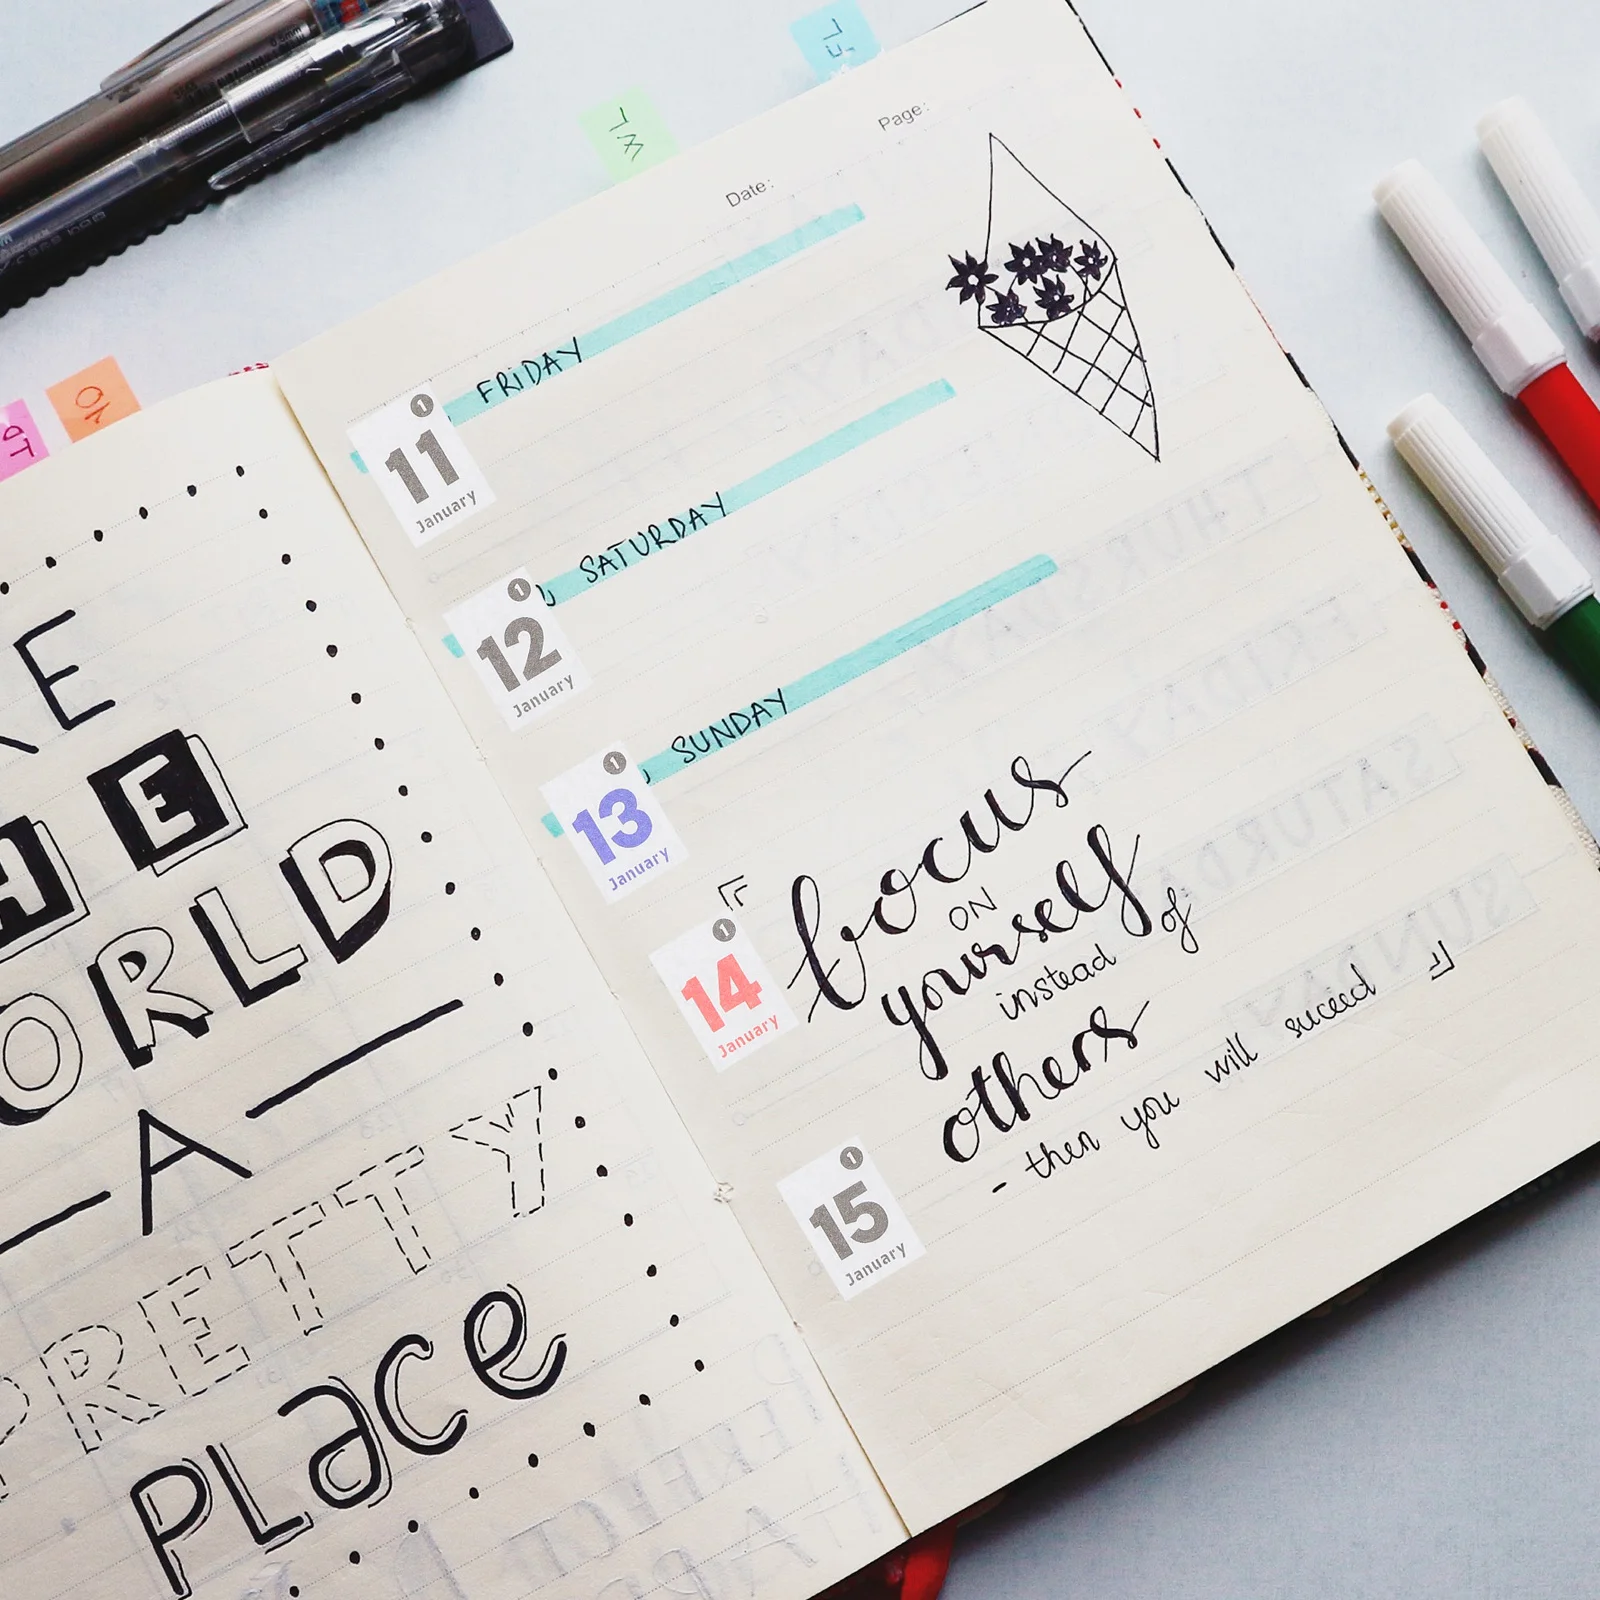 KE
HE
ORLD
A
PRETTY
PLace
Date:
Page:
1
11
January
FRIDAY
1
12
January
SATURDAY
1
13
January
SUNDAY
1
14
January
focus
ON
yourself
instead of
others
- then you will suceed
1
15
January